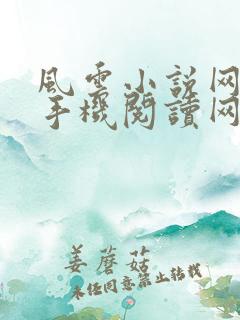 風雲小説网
手機閱讀网
姜蘑菇
未经同意禁止转载